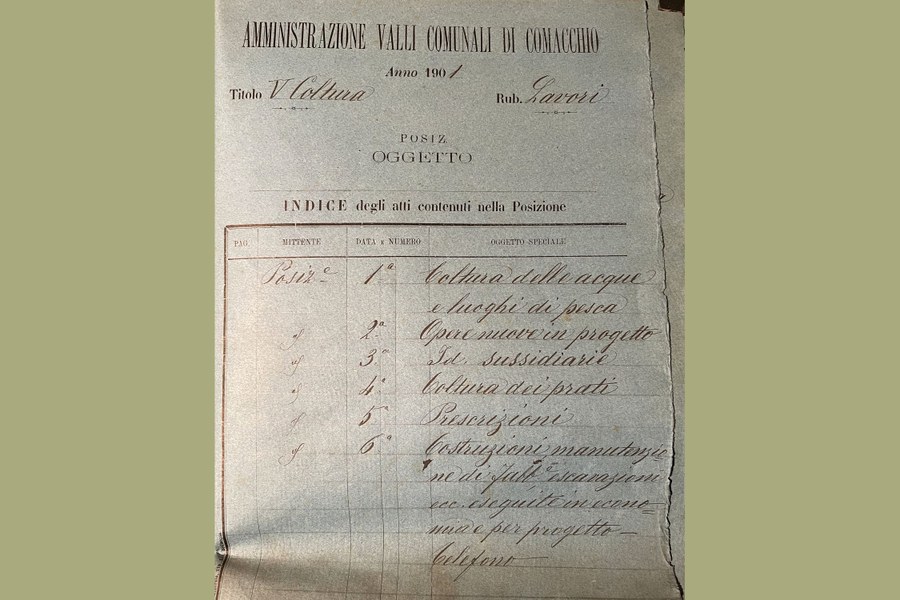 AMMINISTRAZIONE VALLI COMUNALI DI COMACCHIO
Anno 1901
Titolo V Coltura Rub. Lavori
POSIZ
OGGETTO
INDICE degli atti contenuti nella Posizione
PAG. MITTENTE DATA E NUMERO OGGETTO SPECIALE
Posiz.e 1a Coltura delle acque
e luoghi di pesca
2a Opere nuove in progetto
3a Id. sussidiarie
4a Coltura dei prati
5a Prescrizioni
6a Costruzioni, manutenzio
ne di fabb.e escavazioni
ecc. eseguite in econo=
mia e per progetto —
Telefono —